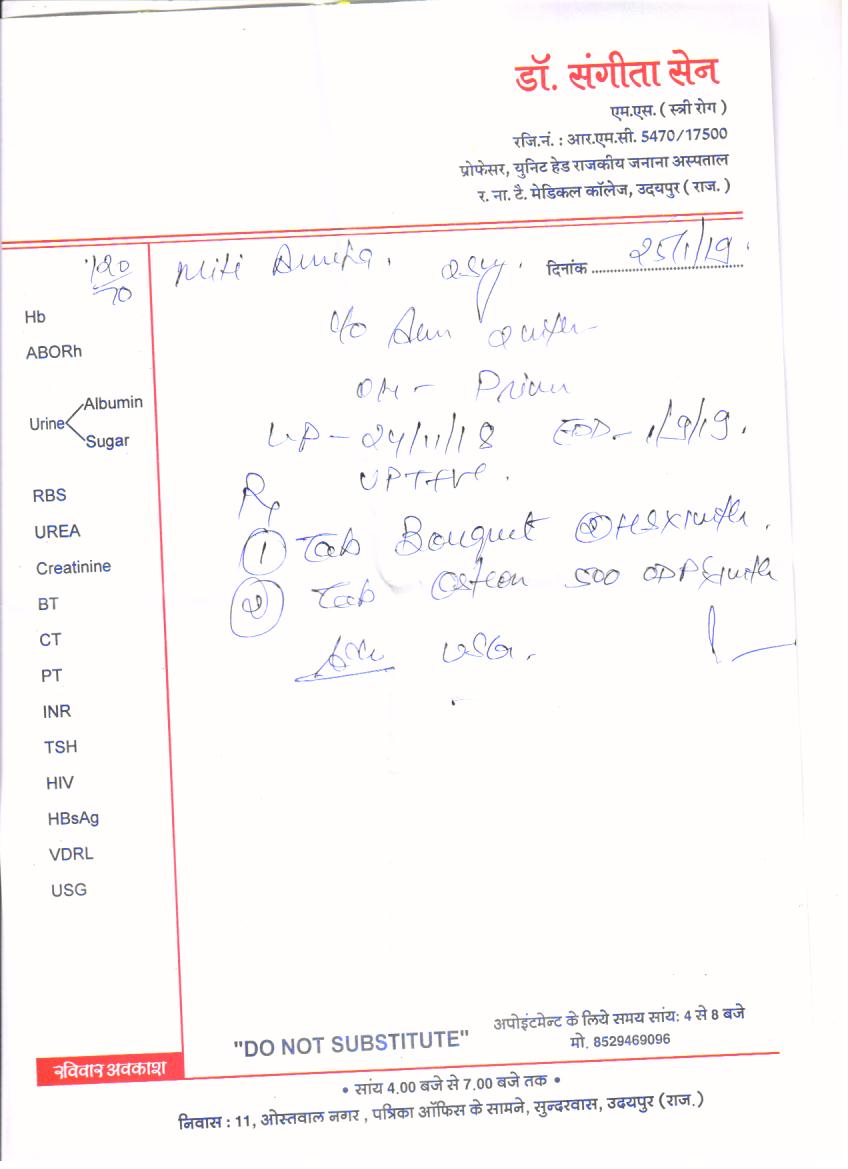 डॉ. संगीता सेन
एम.एस. ( स्त्री रोग )
रजि.नं. : आर.एम.सी. 5470/17500
प्रोफेसर, युनिट हेड राजकीय जनाना अस्पताल
र. ना. टै. मेडिकल कॉलेज, उदयपुर ( राज. )
120/70
दिनांक 25/1/19.
Hb
ABORh
Urine Albumin
Sugar
RBS
UREA
Creatinine
BT
CT
PT
INR
TSH
HIV
HBsAg
VDRL
USG
c/o
OH -
LMP - 24/11/18 EDD - 1/9/19.
UPT +ve.
Rx
1 Tab Bouquet HS x 1 mth.
2 Tab 500 OD
USG.
"DO NOT SUBSTITUTE"
अपोइंटमेन्ट के लिये समय सांय: 4 से 8 बजे
मो. 8529469096
रविवार अवकाश
• सांय 4.00 बजे से 7.00 बजे तक •
निवास : 11, ओस्तवाल नगर , पत्रिका ऑफिस के सामने, सुन्दरवास, उदयपुर (राज.)